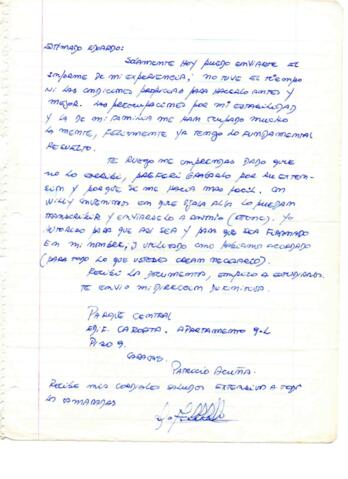 ESTIMADO EDUARDO:
SOLAMENTE HOY PUEDO ENVIARTE EL
INFORME DE MI EXPERIENCIA; NO TUVE EL TIEMPO
NI LAS CONDICIONES PROPICIAS PARA HACERLO ANTES Y
MEJOR. LAS PREOCUPACIONES POR MI ESTABILIDAD
Y LA DE MI FAMILIA ME HAN OCUPADO MUCHO
LA MENTE, FELIZMENTE YA TENGO LO FUNDAMENTAL
RESUELTO.
TE RUEGO ME COMPRENDAS DADO QUE
NO LO ESCRIBÍ, PREFERÍ GRABARLO POR SU EXTEN-
SIÓN Y PORQUE SE ME HACÍA MAS FACIL. CON
WILLY QUE ALLÁ LO PUEDAN
TRANSCRIBIR Y ENVIARSELO A YO
AUTORIZO PARA QUE ASI SEA Y PARA QUE SEA FIRMADO
EN MI NOMBRE, Y UTILIZADO COMO HABIAMOS ACORDADO
(PARA TODO LO QUE USTEDES CREAN NECESARIO).
RECIBÍ LOS DOCUMENTOS, EMPIEZO A ESTUDIARLOS.
TE ENVIO MI DIRECCION DEFINITIVA.
PARQUE CENTRAL
EDIF. CAROATA. APARTAMENTO 9-L
PISO 9.
CARACAS.
PATRICIO ACUÑA.
RECIBE MIS CORDIALES SALUDOS EXTENSIVO A TODOS
LOS CAMARADAS